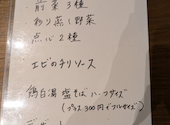 ・前菜3種
・彩り蒸し野菜
・点心2種
エビのチリソース
鶏白湯 塩そば ハーフサイズ
(プラス300円でフルサイズ)